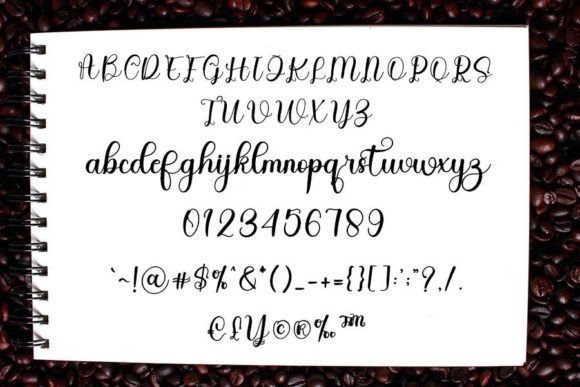 ABCDEFGHIJKLMNOPQRS
TUVWXYZ
abcdefghijklmnopqrstuvwxyz
0123456789
`~!@#$%^&*()_-+={}[]:';"?,/.
€£¥©®‰™